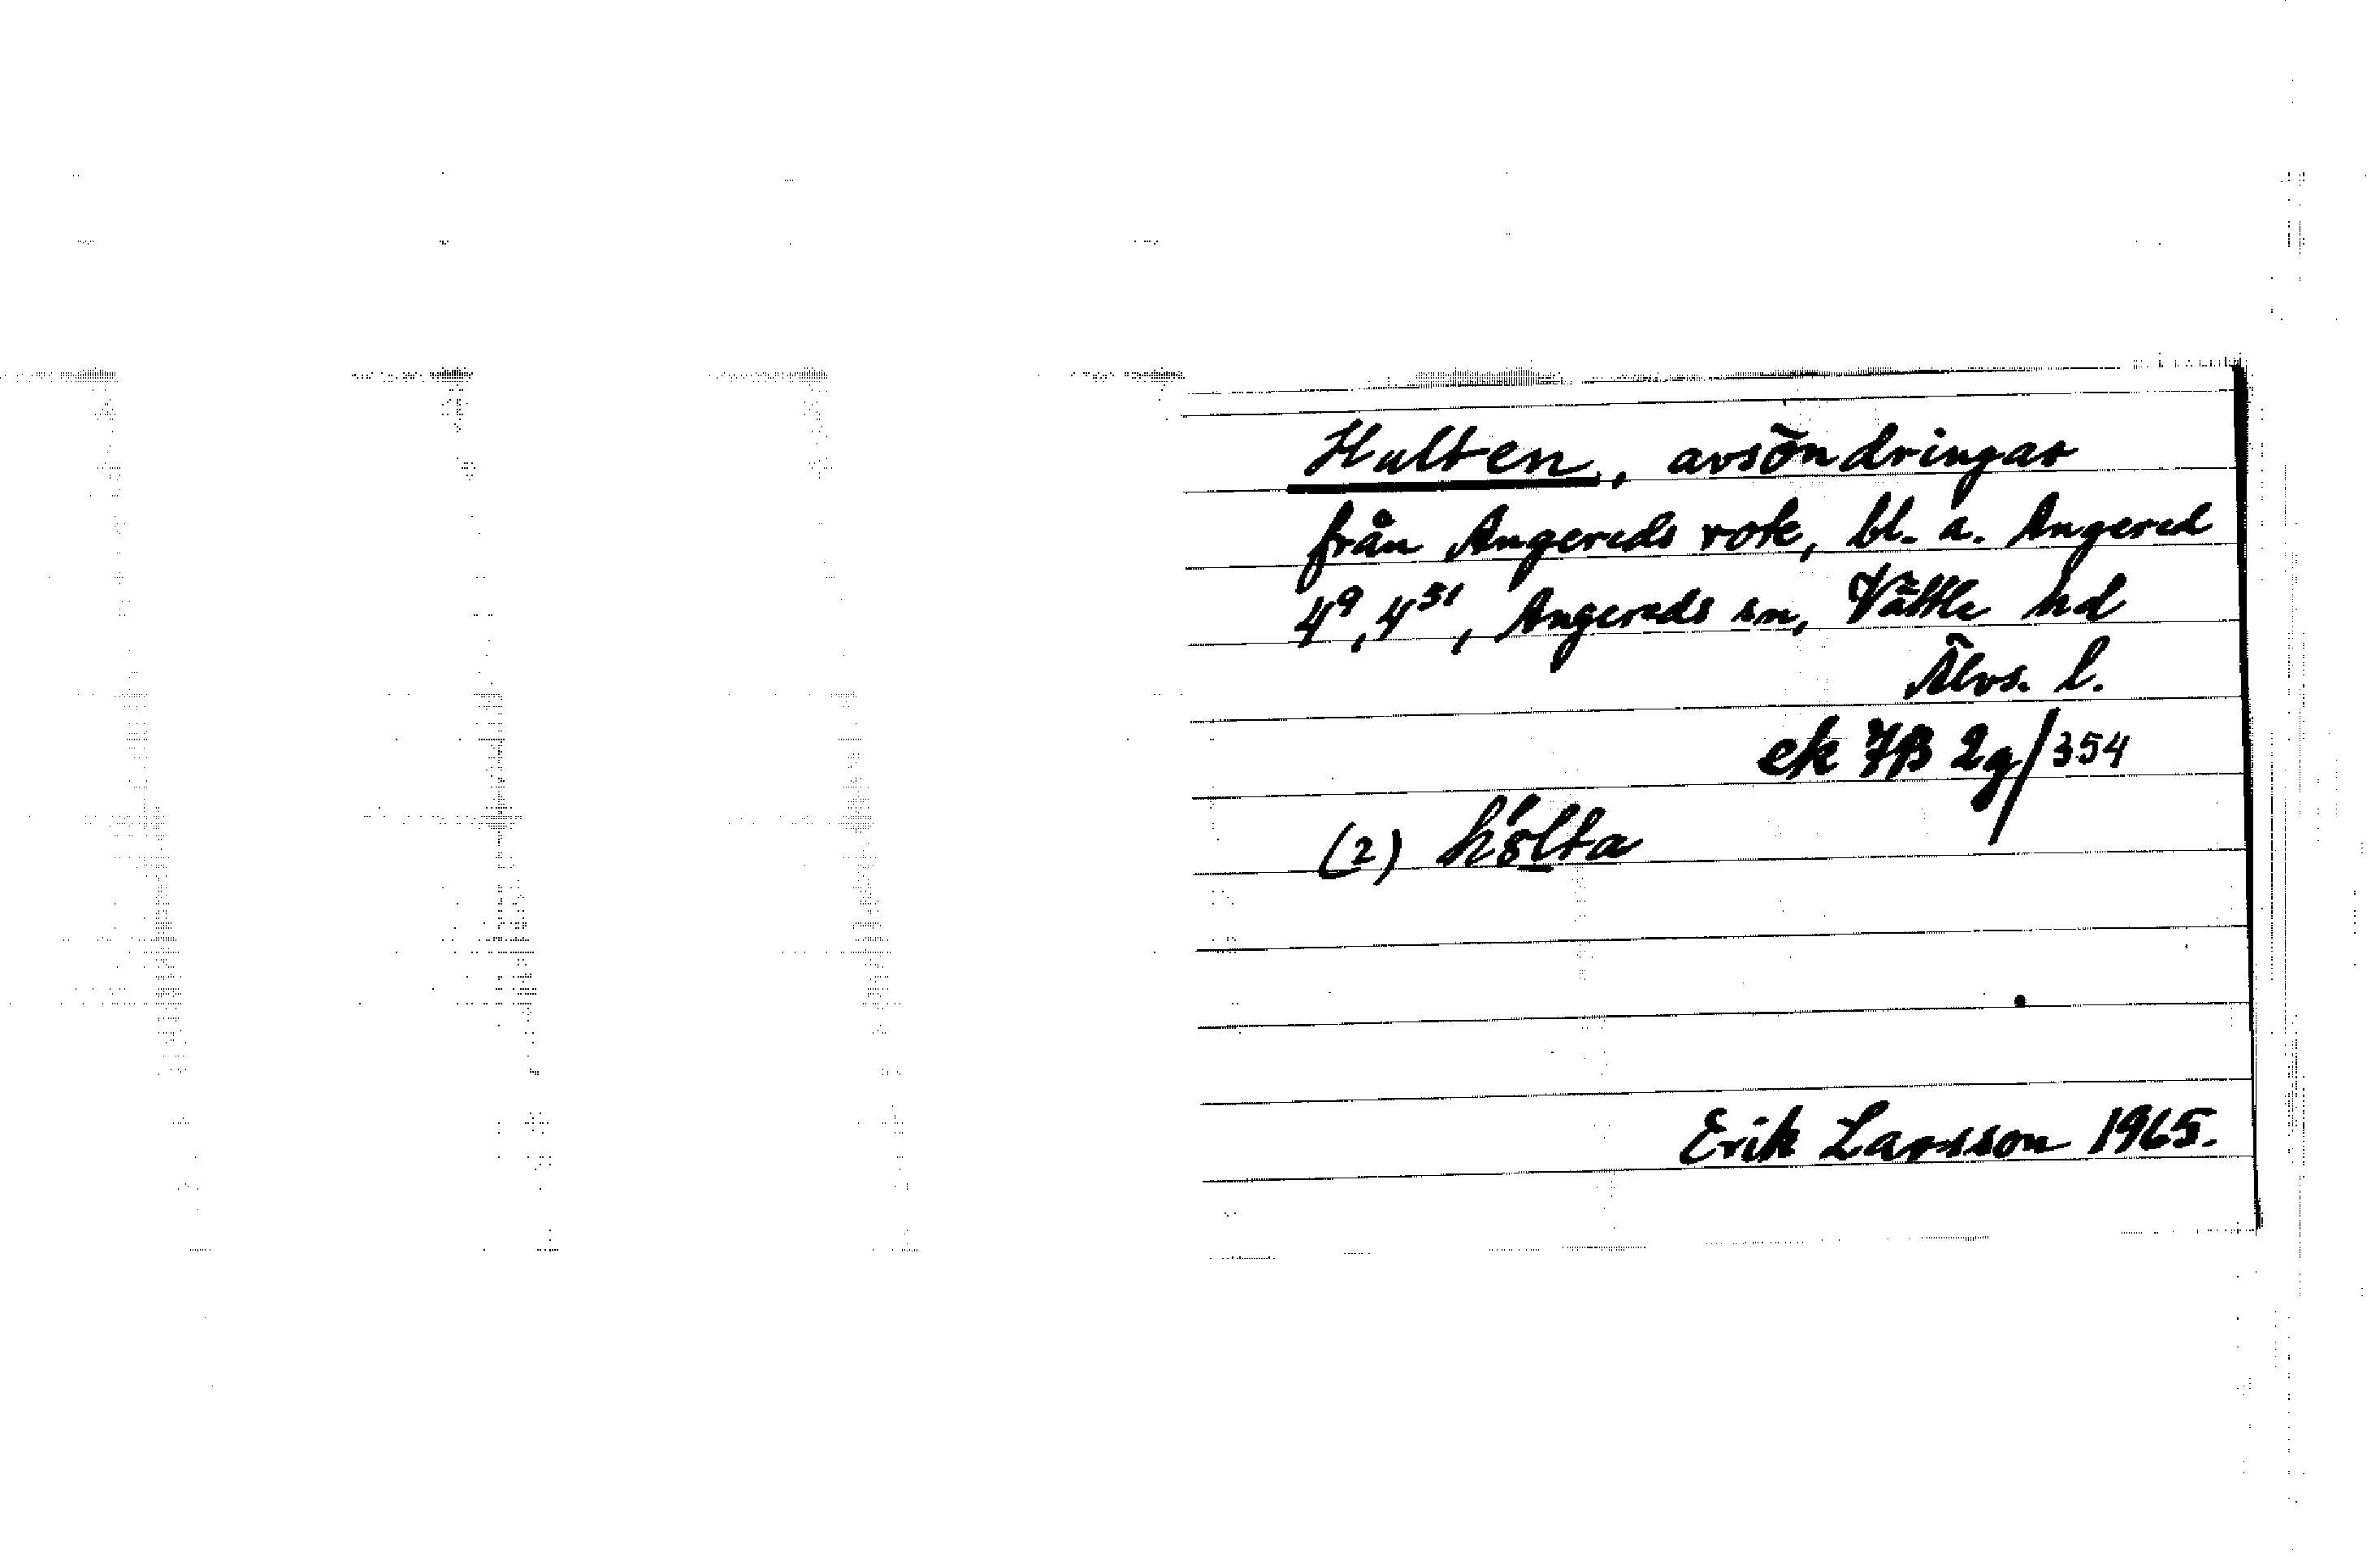 Hulten, avsöndringar
från Angereds rote, bl. a. Angered
4⁹, 4³¹, Angereds sn, Vättle hd
Älvs. l.
ek 7B 2g/354
(2)
Erik Larsson 1965.